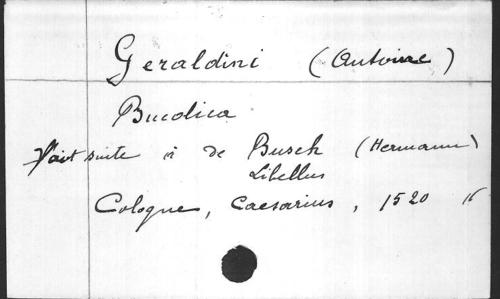 Geraldini (Antoine)
Bucolica
Fait suite à de Busch (Hermann)
Libellus
Cologne, Caesarius, 1520